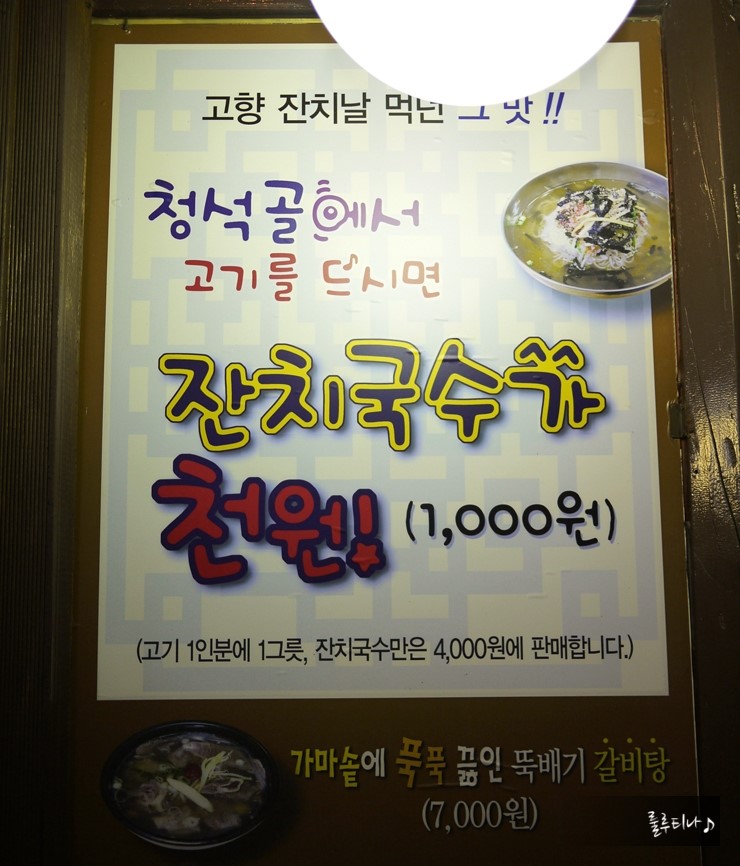 고향 잔치날 먹던 그 맛!!
청석골에서
고기를 드시면
잔치국수가
천원! (1,000원)
(고기 1인분에 1그릇, 잔치국수만은 4,000원에 판매합니다.)
가마솥에 푹푹 끓인 뚝배기 갈비탕
(7,000원)
룰루티나♪